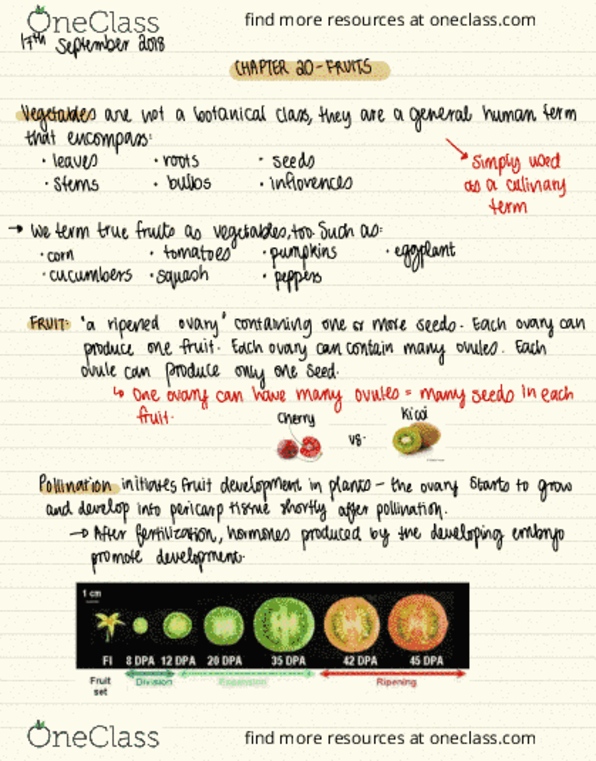 OneClass find more resources at oneclass.com
17th September 2018
CHAPTER 20 - FRUITS
Vegetables are not a botanical class, they are a general human term
that encompass:
• leaves • roots • seeds
• stems • bulbs • inflorences
Simply used
as a culinary
term
→ We term true fruits as vegetables, too. Such as:
• corn • tomatoes • pumpkins • eggplant
• cucumbers • squash • peppers
FRUIT: "a ripened ovary" containing one or more seeds. Each ovary can
produce one fruit. Each ovary can contain many ovules. Each
ovule can produce only one seed.
↳ One ovary can have many ovules = many seeds in each
fruit.
Cherry vs. Kiwi
Pollination initiates fruit development in plants - the ovary starts to grow
and develop into pericarp tissue shortly after pollination.
→ After fertilization, hormones produced by the developing embryo
promote development.
1 cm
Fl 8 DPA 12 DPA 20 DPA 35 DPA 42 DPA 45 DPA
Fruit set Division Expansion Ripening
OneClass find more resources at oneclass.com